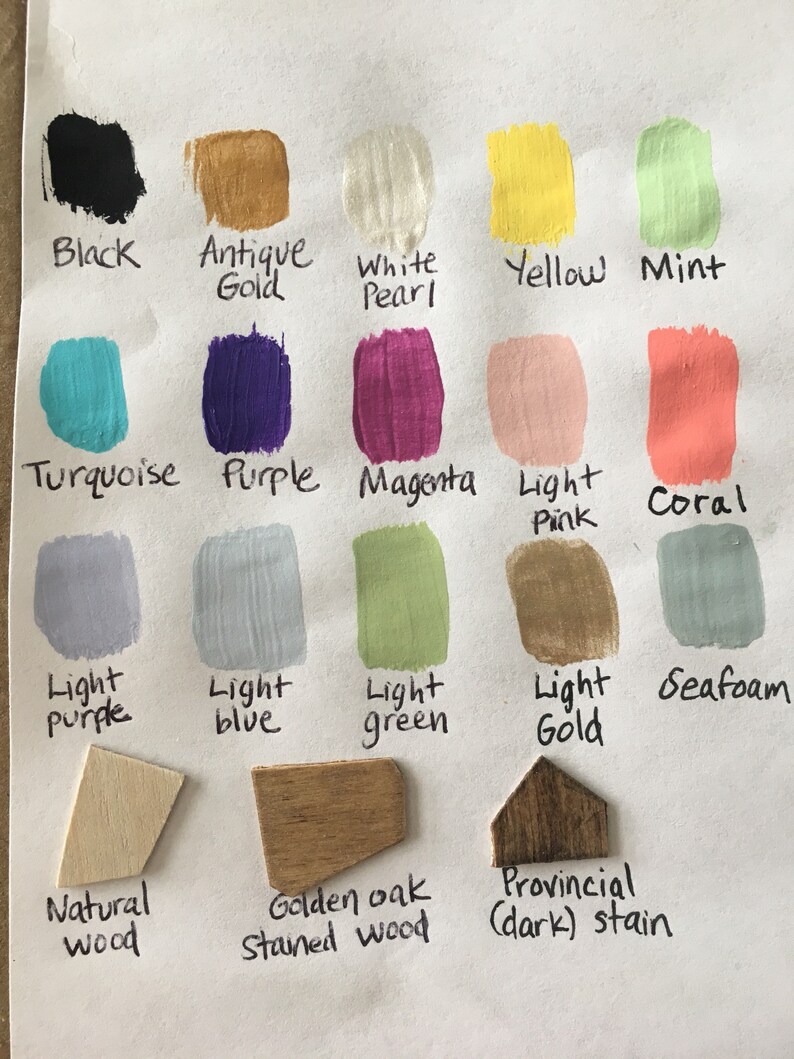 Black
Antique
Gold
White
Pearl
Yellow
Mint
Turquoise
Purple
Magenta
Light
pink
Coral
Light
purple
Light
blue
Light
green
Light
Gold
Seafoam
Natural
wood
Golden oak
stained wood
Provincial
(dark) stain